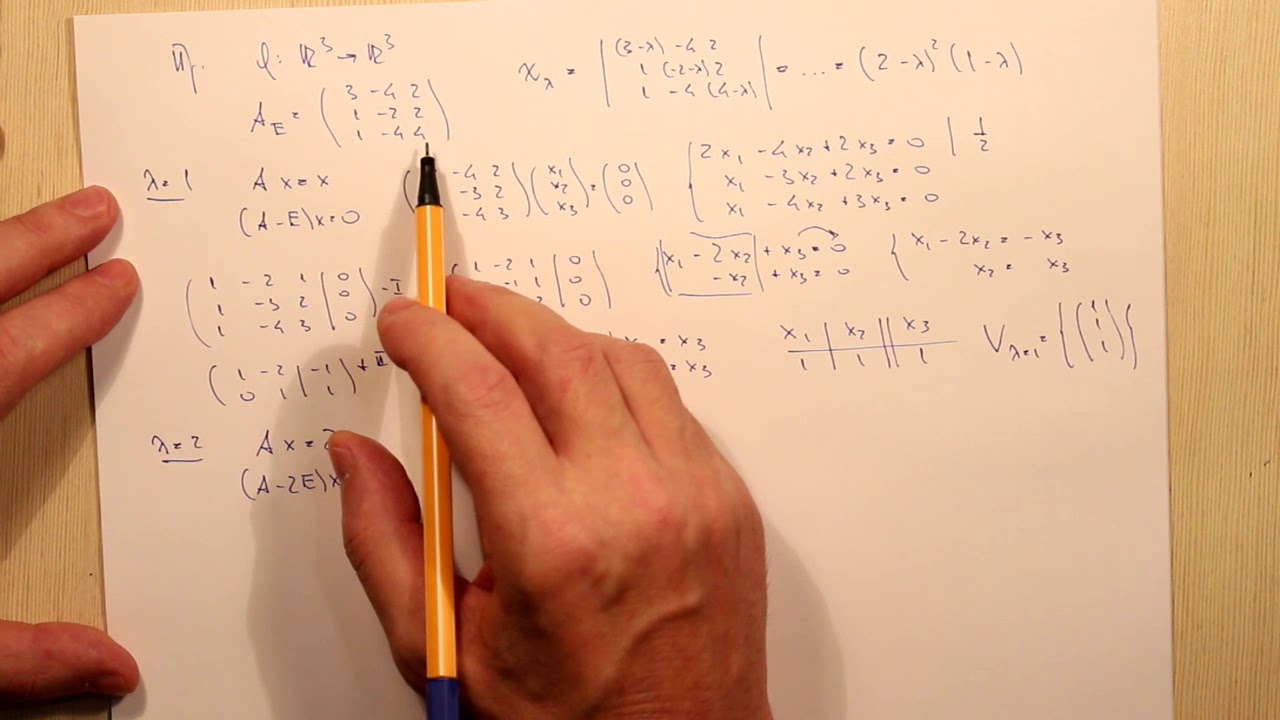 Пр. φ: ℝ³ → ℝ³
A_E = ( 3 -4 2 ; 1 -2 2 ; 1 -4 4 )
χ_λ = | (3-λ) -4 2 ; 1 (-2-λ) 2 ; 1 -4 (4-λ) | = ... = (2-λ)² (1-λ)
λ=1 A x = x
(A-E)x=0
-4 2 ; -3 2 ; -4 3 ) ( x₁ ; x₂ ; x₃ ) = ( 0 ; 0 ; 0 )
{ 2x₁ -4x₂ + 2x₃ = 0 | 1/2
x₁ -3x₂ + 2x₃ = 0
x₁ -4x₂ + 3x₃ = 0
( 1 -2 1 | 0 ; 1 -3 2 | 0 ; 1 -4 3 | 0 ) -I
1 -2 1 | 0 ; -1 1 | 0 ; 0 )
{ x₁ - 2x₂ + x₃ = 0
-x₂ + x₃ = 0
{ x₁ - 2x₂ = -x₃
x₂ = x₃
( 1 -2 | -1 ; 0 1 | 1 ) + II
= x₃
= x₃
x₁ | x₂ || x₃
1 | 1 || 1
V_λ=1 = { ( 1 ; 1 ; 1 ) }
λ=2 A x = 2
(A-2E)x